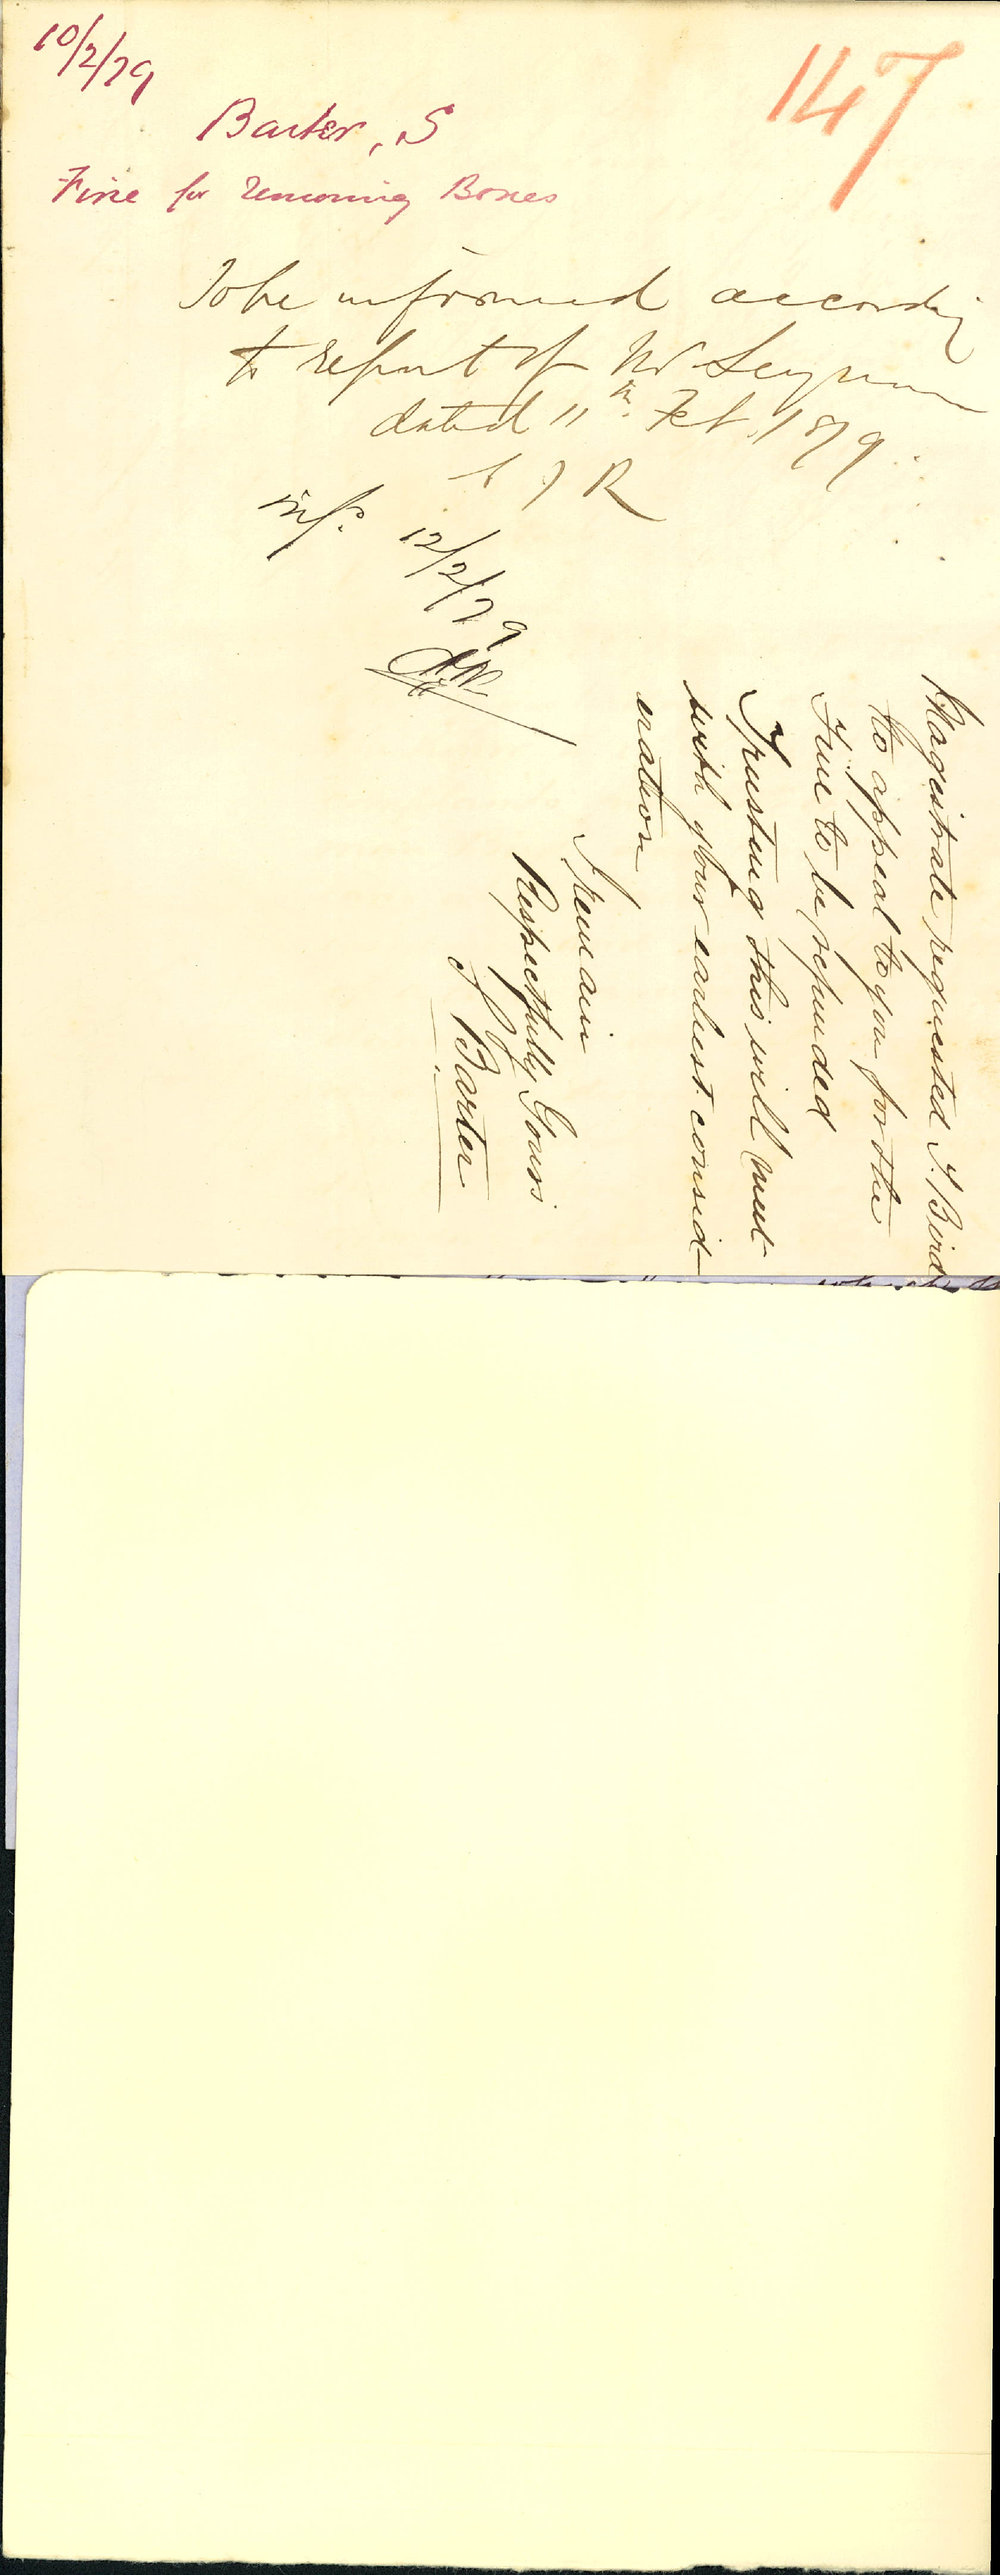 10/2/79
147
Barter, S
Fine for removing Bones
To be informed according
to report of Mr Seymour
dated 11th. Feb. 1879.
infd. 12/2/79
Magistrate requested J. Bird
to appeal to you for the
Fine to be refunded
Trusting this will meet
with your earliest consid-
eration
I remain
Respectfully Yours
S Barter